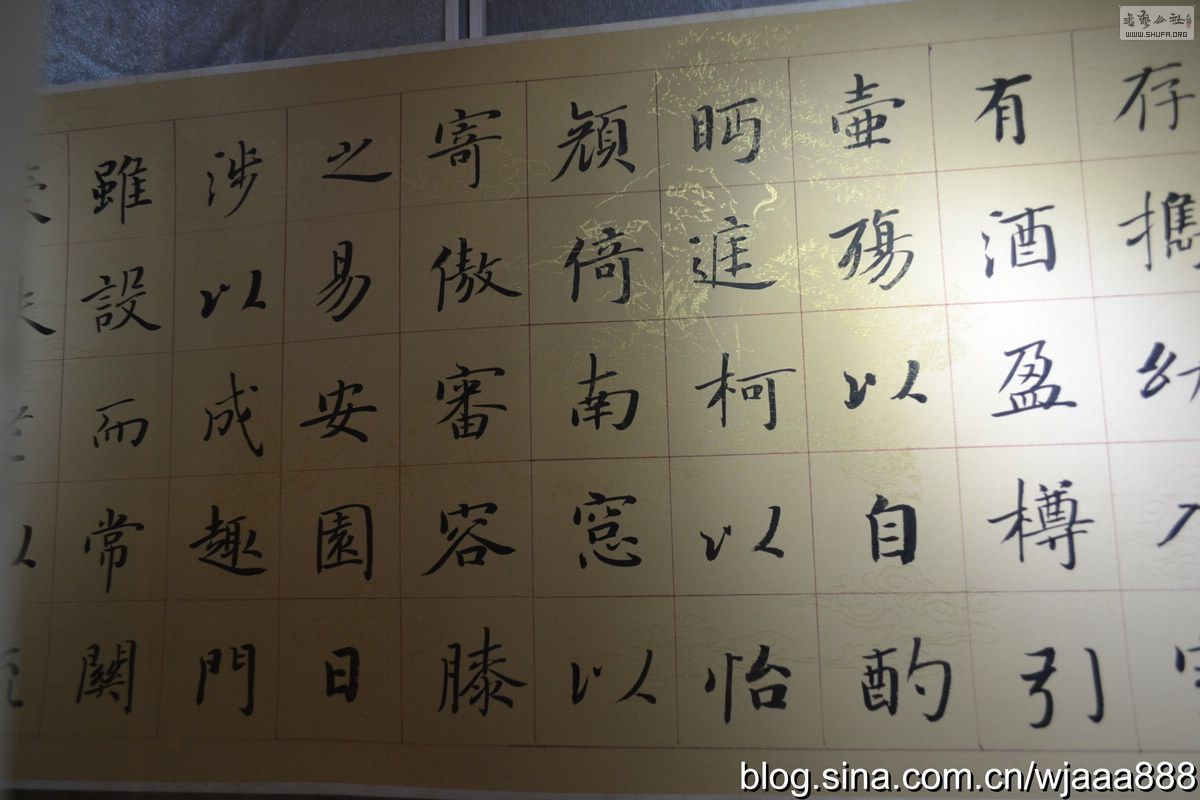 存攜幼
有酒盈樽引
壺殤以自酌
眄庭柯以怡
顏倚南窓以
寄傲審容膝
之易安園日
涉以成趣門
雖設而常關
書藝公社
WWW.SHUFA.ORG
blog.sina.com.cn/wjaaa888